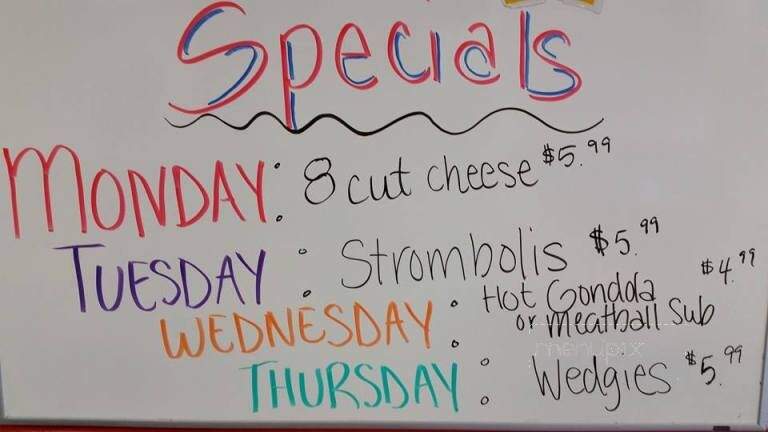 Specials
MONDAY: 8 cut cheese $5.99
TUESDAY: Strombolis $5.99
WEDNESDAY: Hot Gondola $4.99
or Meatball Sub
THURSDAY: Wedgies $5.99
menupix